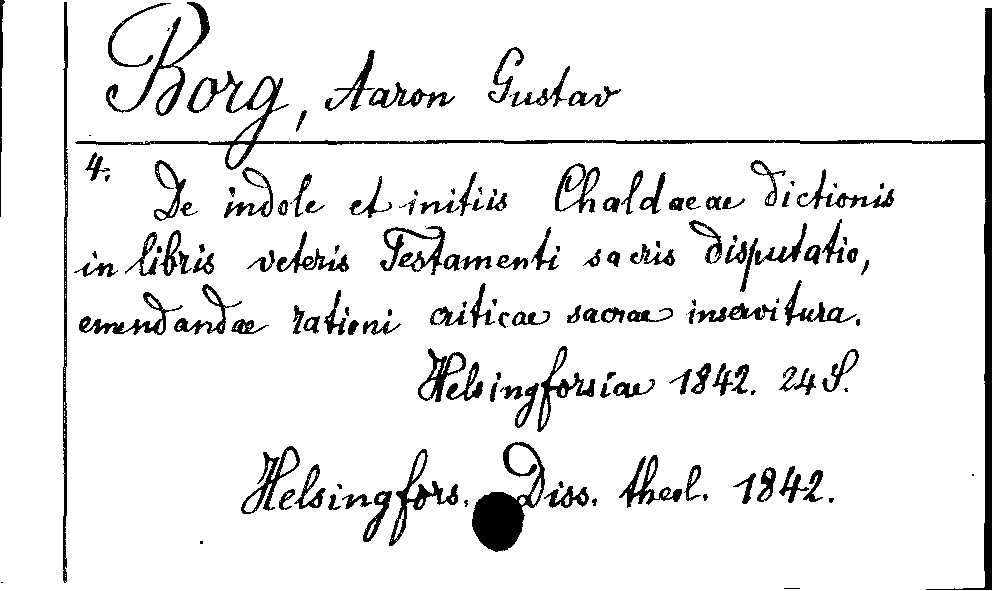 Borg, Aaron Gustav
4.
De indole et initiis Chaldaeae dictionis
in libris veteris Testamenti sacris disputatio,
emendandae rationi criticae sacrae inservitura.
Helsingforsiae 1842. 24 S.
Helsingfors. Diss. theol. 1842.